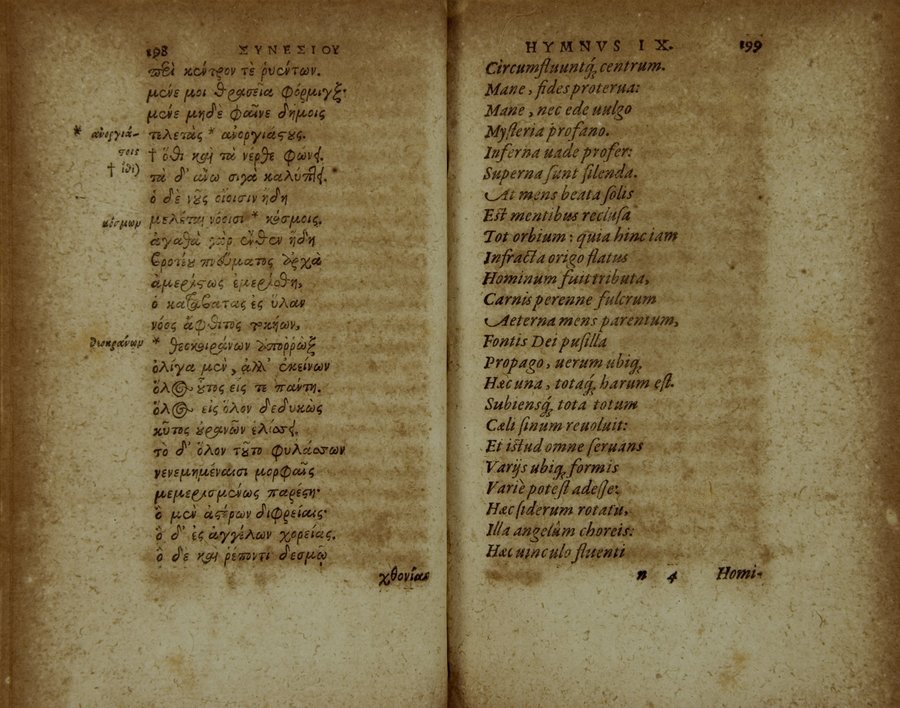 198 ΣΥΝΕΣΙΟΥ
περὶ κέντρον τὲ ῥυέντων.
μένε μοι θρασεῖα φόρμιγξ·
μένε μηδὲ φαῖνε δήμοις
* ἀνοργιά- τελετὰς * ἀνοργιάστους.
στοις † ὄθι καὶ τὰ νέρθε φώνει.
† ἴθι) τὰ δ' ἄνω σιγὰ καλύπτει. *
ὁ δὲ νοῦς οἴοισιν ἤδη
κόσμων μέλεται νόοισι * κόσμοις.
ἀγαθὰ γὰρ ἔνθεν ἤδη
βροτέου πνεύματος ἀρχὰ
ἀμερίστως ἐμερίσθη,
ὁ καταιβάτας ἐς ὕλαν
νόος ἄφθιτος τοκήων,
θεοκράνων * θεοκοιράνων ἀπορρὼξ
ὀλίγα μὲν, ἀλλ' ἐκείνων
ὅλος οὗτος εἷς τε πάντη.
ὅλος εἰς ὅλον δεδυκὼς
κῦτος οὐρανῶν ἑλίσσει.
τὸ δ' ὅλον τοῦτο φυλάσσων
νενεμημέναισι μορφαῖς
μεμερισμένως παρέστη·
ὁ μὲν ἀστέρων διφρείαις·
ὁ δ' ἐς ἀγγέλων χορείας.
ὁ δὲ καὶ ῥέποντι δεσμῷ
χθονίας
HYMNVS IX. 199
Circumfluuntq́; centrum.
Mane, fides proterua:
Mane, nec ede uulgo
Mysteria profano.
Inferna uade profer:
Superna sunt silenda.
At mens beata solis
Est mentibus reclusa
Tot orbium: quia hinc iam
Infracta origo flatus
Hominum fuit tributa,
Carnis perenne fulcrum
Aeterna mens parentum,
Fontis Dei pusilla
Propago, uerum ubiq;
Hæc una, totaq́; harum est.
Subiensq́; tota totum
Cæli sinum reuoluit:
Et istud omne seruans
Varijs ubiq; formis
Variè potest adesse:
Hæc siderum rotatu,
Illa angelûm choreis:
Hæc uinculo fluenti
n 4 Homi-